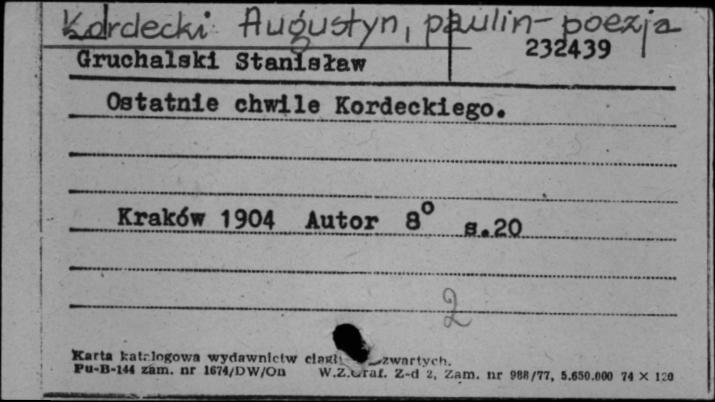 Kordecki Augustyn, paulin - poezja
232439
Gruchalski Stanisław
Ostatnie chwile Kordeckiego.
Kraków 1904 Autor 8° s.20
2
Karta katalogowa wydawnictw zwartych.
Pu-B-144 zam. nr 1674/DW/On W.Z.Graf. Z-d 2, Zam. nr 988/77, 5.650.000 74 × 120